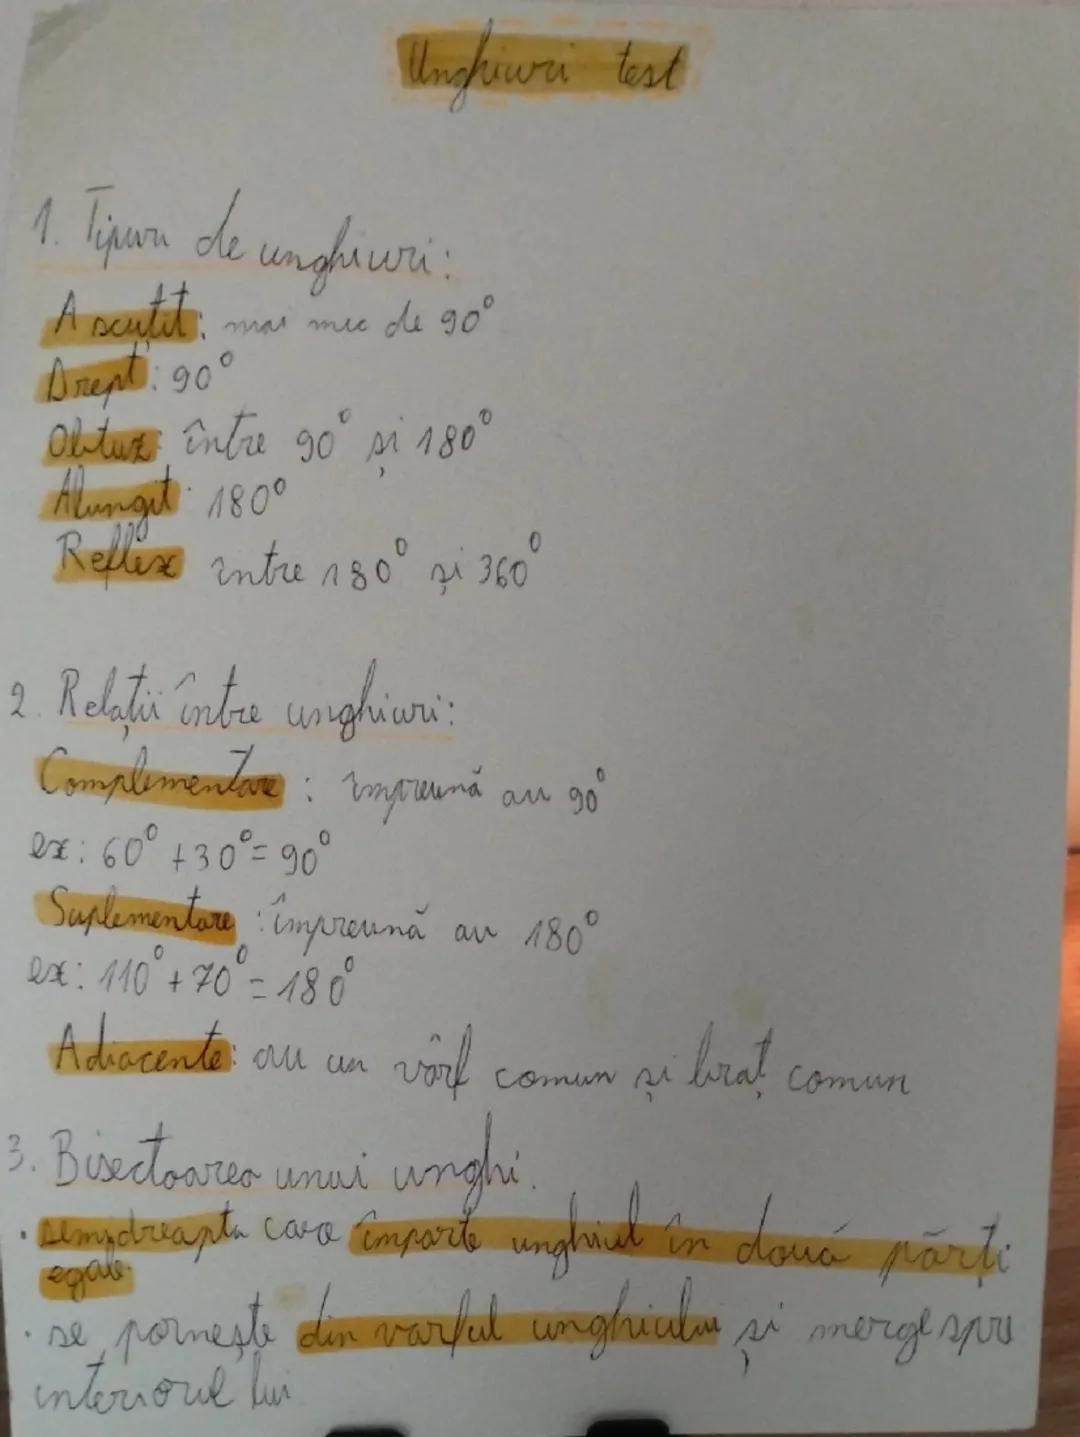 Unghiuri test
1. Tipuri de unghiuri:
Ascuțit: mai mic de 90°
Drept: 90°
Obtuz: între 90° și 180°
Alungit: 180°
Reflex între 180° și 360°
2. Relații între unghiuri:
Complementare: împreună au 90°
ex: 60° + 30° = 90°
Suplementare: împreună au 180°
ex: 110° + 70° = 180°
Adiacente: au un vârf comun și braț comun
3. Bisectoarea unui unghi.
· semidreapta care împarte unghiul în două părți
egale.
· se pornește din varful unghiului și merge spre
interiorul lui